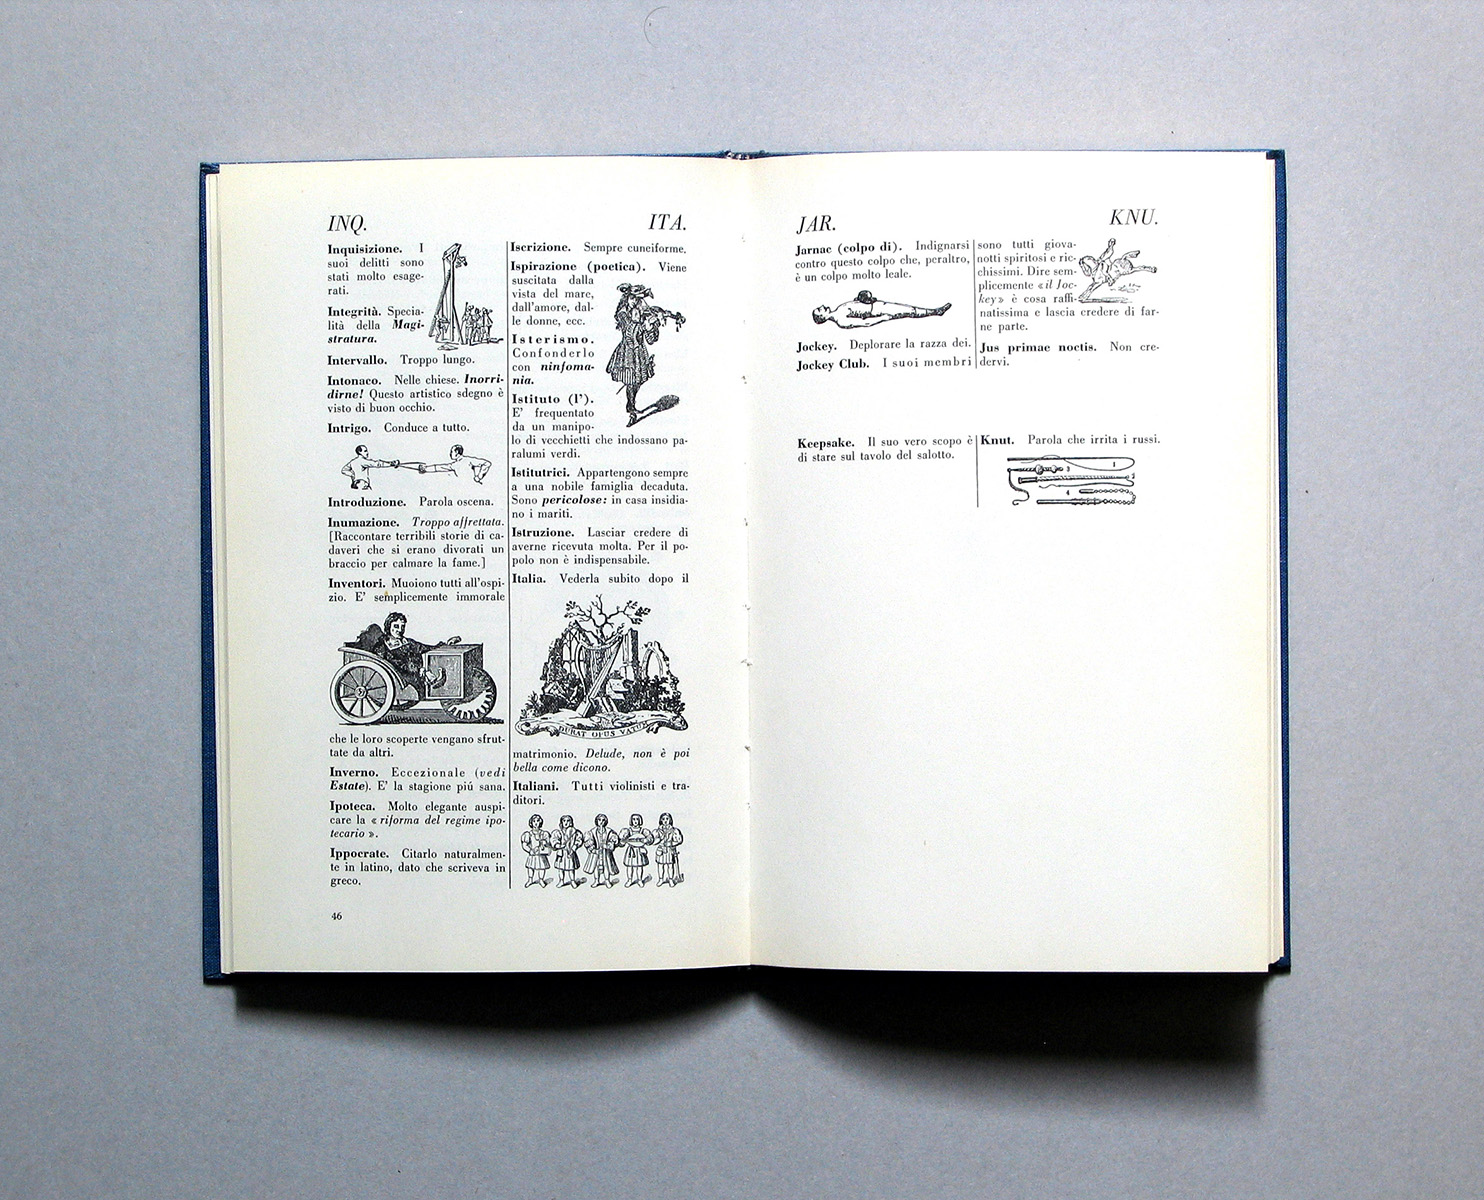 INQ.
ITA.
Inquisizione. I
suoi delitti sono
stati molto esage-
rati.
Integrità. Specia-
lità della Magi-
stratura.
Intervallo. Troppo lungo.
Intonaco. Nelle chiese. Inorri-
dirne! Questo artistico sdegno è
visto di buon occhio.
Intrigo. Conduce a tutto.
Introduzione. Parola oscena.
Inumazione. Troppo affrettata.
[Raccontare terribili storie di ca-
daveri che si erano divorati un
braccio per calmare la fame.]
Inventori. Muoiono tutti all'ospi-
zio. E' semplicemente immorale
che le loro scoperte vengano sfrut-
tate da altri.
Inverno. Eccezionale (vedi
Estate). E' la stagione piú sana.
Ipoteca. Molto elegante auspi-
care la « riforma del regime ipo-
tecario ».
Ippocrate. Citarlo naturalmen-
te in latino, dato che scriveva in
greco.
46
Iscrizione. Sempre cuneiforme.
Ispirazione (poetica). Viene
suscitata dalla
vista del mare,
dall'amore, dal-
le donne, ecc.
Isterismo.
Confonderlo
con ninfoma-
nia.
Istituto (l').
E' frequentato
da un manipo-
lo di vecchietti che indossano pa-
ralumi verdi.
Istitutrici. Appartengono sempre
a una nobile famiglia decaduta.
Sono pericolose: in casa insidia-
no i mariti.
Istruzione. Lasciar credere di
averne ricevuta molta. Per il po-
polo non è indispensabile.
Italia. Vederla subito dopo il
DURAT OPUS VATUM
matrimonio. Delude, non è poi
bella come dicono.
Italiani. Tutti violinisti e tra-
ditori.
JAR.
KNU.
Jarnac (colpo di). Indignarsi
contro questo colpo che, peraltro,
è un colpo molto leale.
Jockey. Deplorare la razza dei.
Jockey Club. I suoi membri
sono tutti giova-
notti spiritosi e ric-
chissimi. Dire sem-
plicemente « il Joc-
key » è cosa raffi-
natissima e lascia credere di far-
ne parte.
Jus primae noctis. Non cre-
dervi.
Keepsake. Il suo vero scopo è
di stare sul tavolo del salotto.
Knut. Parola che irrita i russi.
1
3
2
4